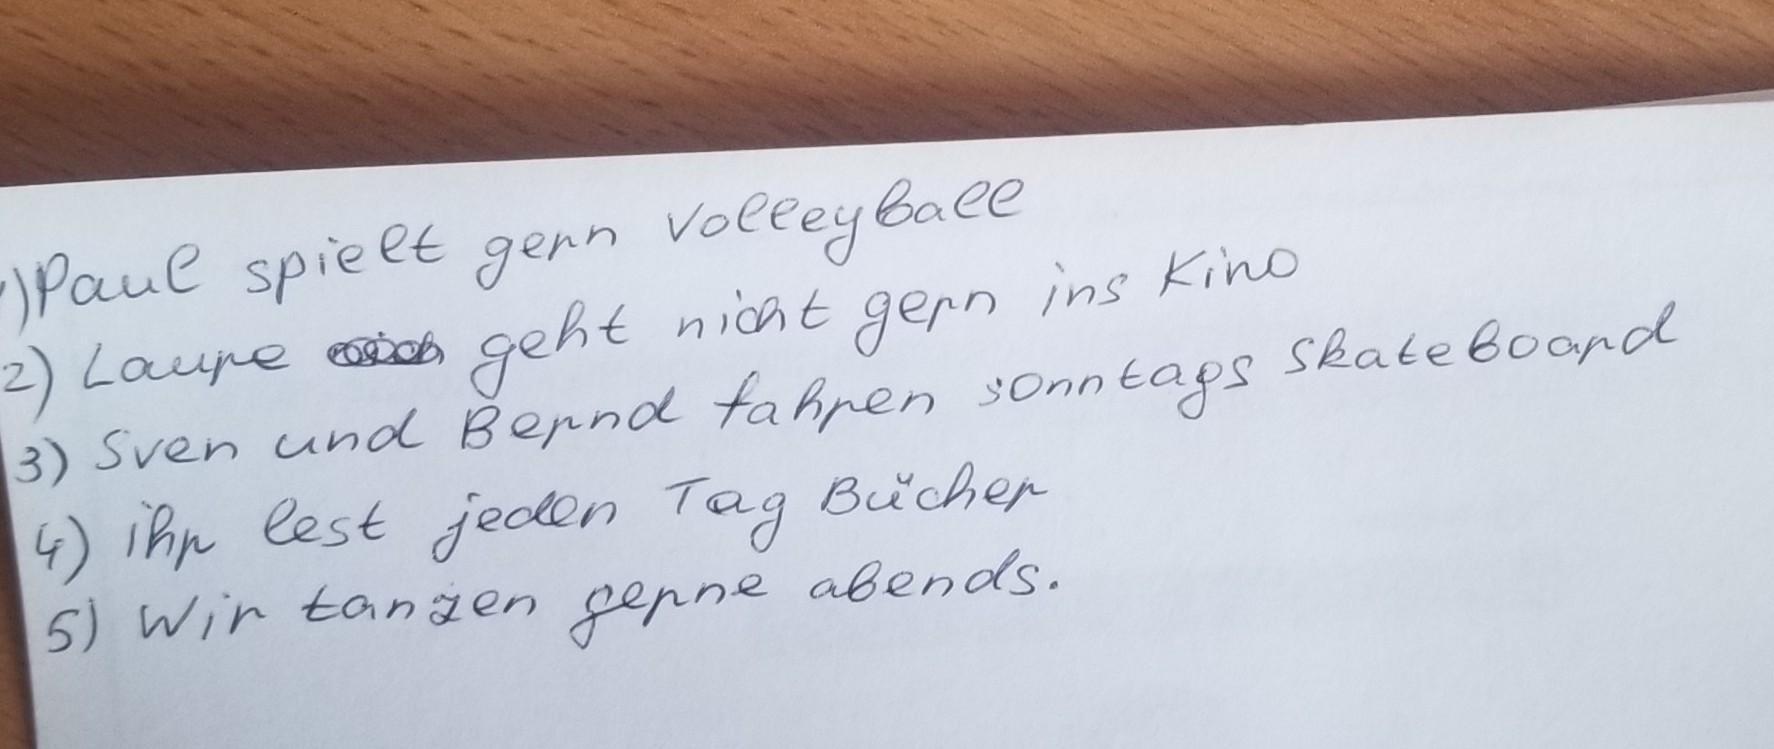 1) Paul spielt gern Volleyball
2) Laure geht nicht gern ins Kino
3) Sven und Bernd fahren sonntags Skateboard
4) ihr lest jeden Tag Bücher
5) Wir tanzen gerne abends.